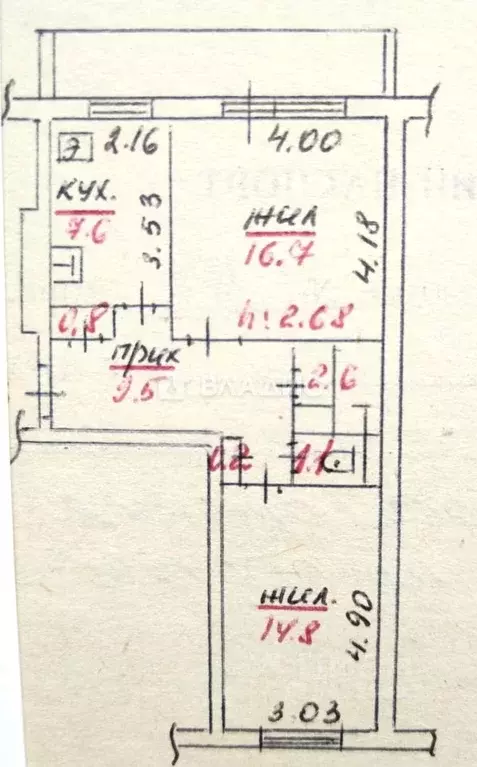 Э 2.16
4.00
кух.
7.6
3.53
жил
16.7
4.18
h: 2.68
0.8
прих
9.5
2.6
1.1
жил.
14.8
4.90
3.03